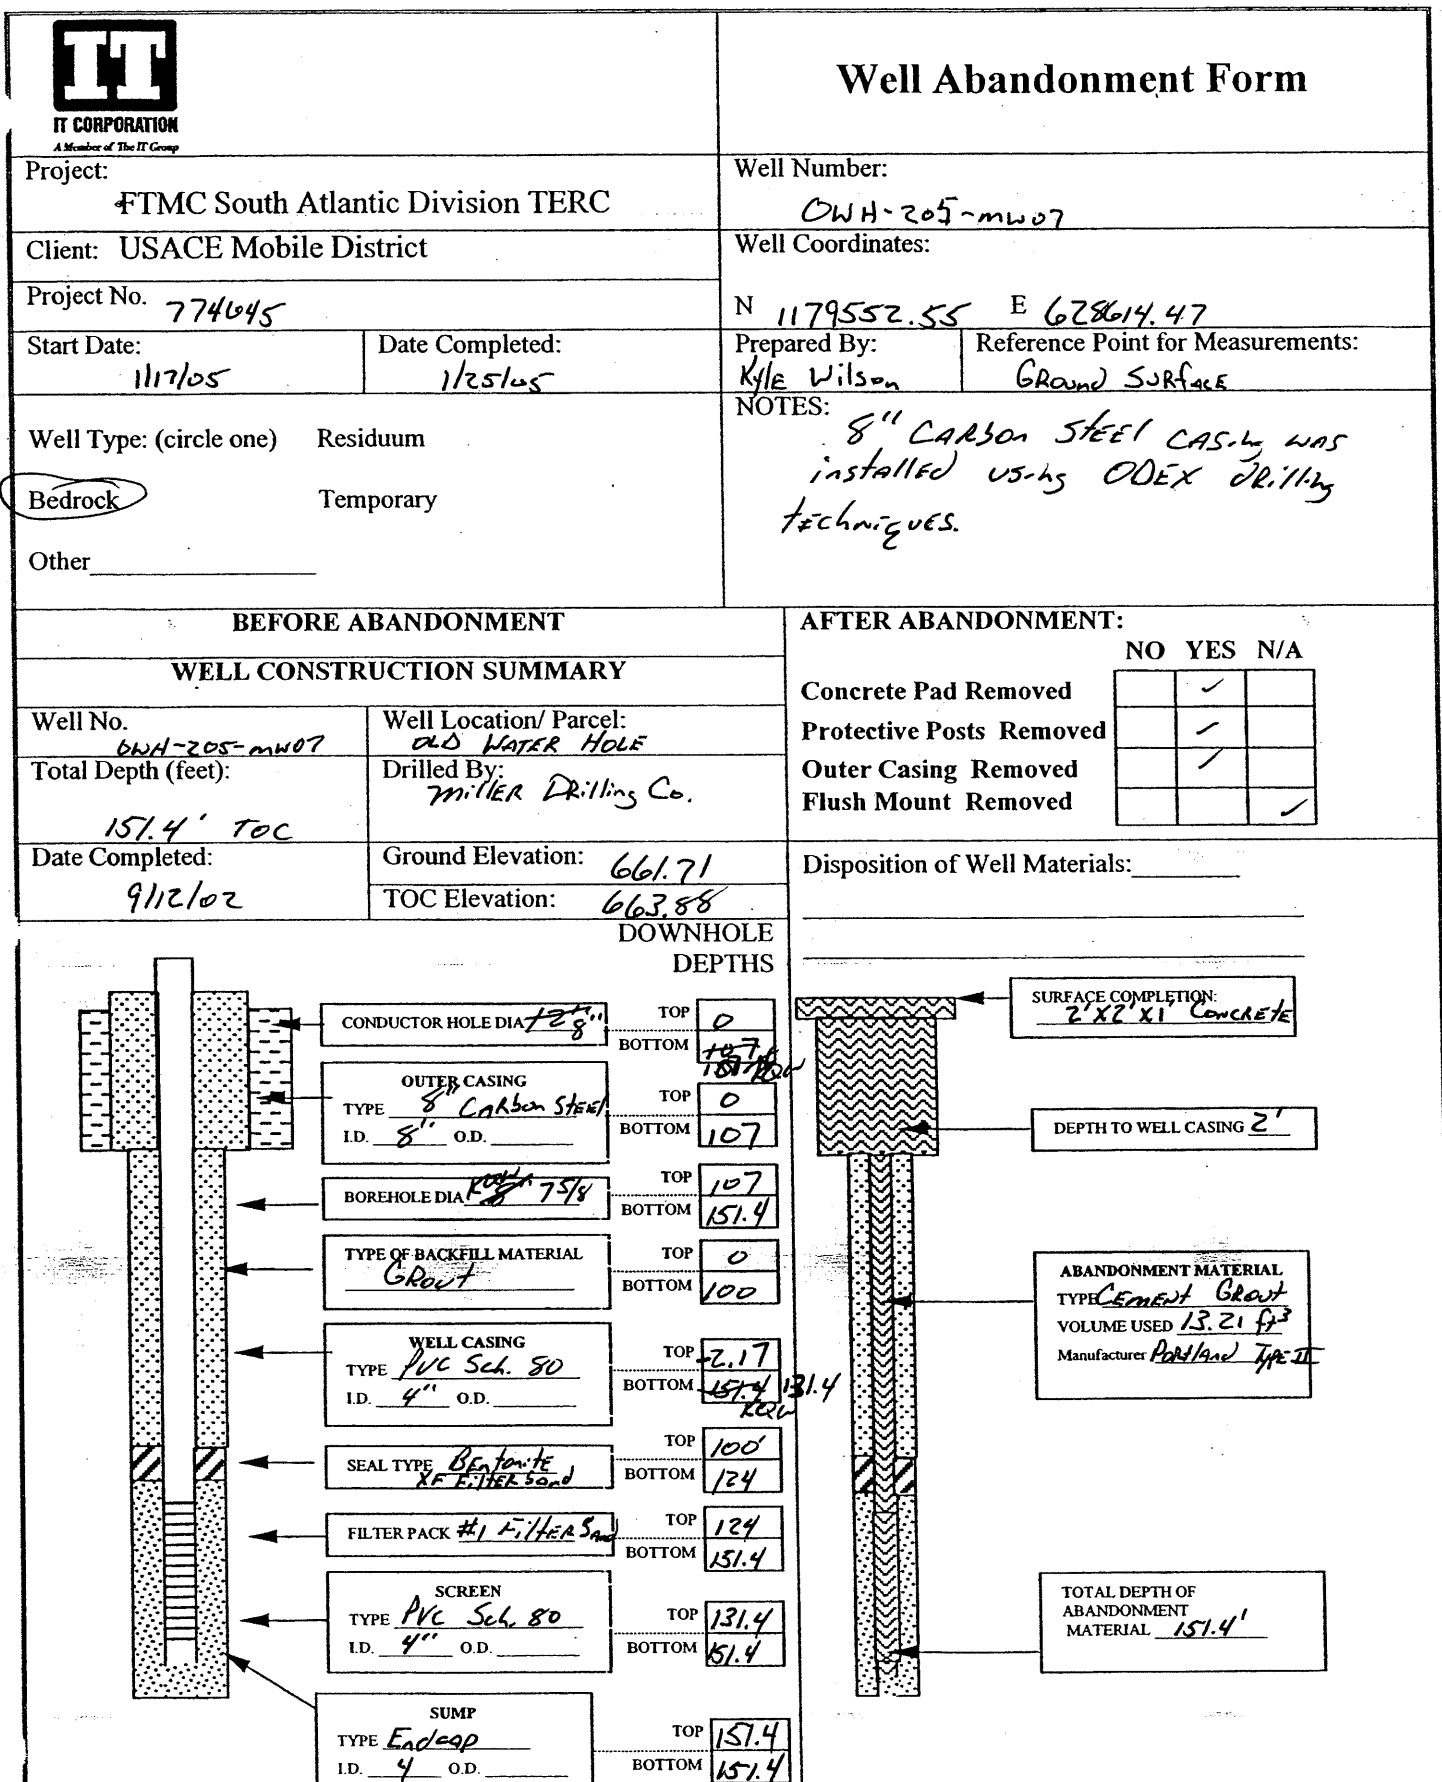 IT
IT CORPORATION
A Member of The IT Group
Well Abandonment Form
Project:
FTMC South Atlantic Division TERC
Well Number:
OWH-205-MW07
Client: USACE Mobile District
Well Coordinates:
Project No. 774645
N 1179552.55 E 628614.47
Start Date:
1/17/05
Date Completed:
1/25/05
Prepared By:
Kyle Wilson
Reference Point for Measurements:
Ground Surface
Well Type: (circle one) Residuum
Bedrock Temporary
Other
NOTES:
8" Carbon Steel casing was
installed using ODEX drilling
techniques.
BEFORE ABANDONMENT
WELL CONSTRUCTION SUMMARY
Well No.
OWH-205-MW07
Well Location/ Parcel:
OLD WATER HOLE
Total Depth (feet):
151.4' TOC
Drilled By:
Miller Drilling Co.
Date Completed:
9/12/02
Ground Elevation: 661.71
TOC Elevation: 663.88
AFTER ABANDONMENT:
NO YES N/A
Concrete Pad Removed ✓
Protective Posts Removed ✓
Outer Casing Removed ✓
Flush Mount Removed ✓
Disposition of Well Materials:
DOWNHOLE
DEPTHS
CONDUCTOR HOLE DIA 8"
TOP 0
BOTTOM 107 KQW
OUTER CASING
TYPE 8" Carbon Steel
I.D. 8" O.D.
TOP 0
BOTTOM 107
BOREHOLE DIA 7 5/8
TOP 107
BOTTOM 151.4
TYPE OF BACKFILL MATERIAL
Grout
TOP 0
BOTTOM 100
WELL CASING
TYPE PVC Sch. 80
I.D. 4" O.D.
TOP -2.17
BOTTOM 151.4 131.4
KQW
SEAL TYPE Bentonite
XF Filter Sand
TOP 100'
BOTTOM 124
FILTER PACK #1 Filter Sand
TOP 124
BOTTOM 151.4
SCREEN
TYPE PVC Sch. 80
I.D. 4" O.D.
TOP 131.4
BOTTOM 151.4
SUMP
TYPE Endcap
I.D. 4 O.D.
TOP 151.4
BOTTOM 151.4
SURFACE COMPLETION:
2'X2'X1' Concrete
DEPTH TO WELL CASING 2'
ABANDONMENT MATERIAL
TYPE Cement Grout
VOLUME USED 13.21 ft³
Manufacturer Portland Type II
TOTAL DEPTH OF
ABANDONMENT
MATERIAL 151.4'